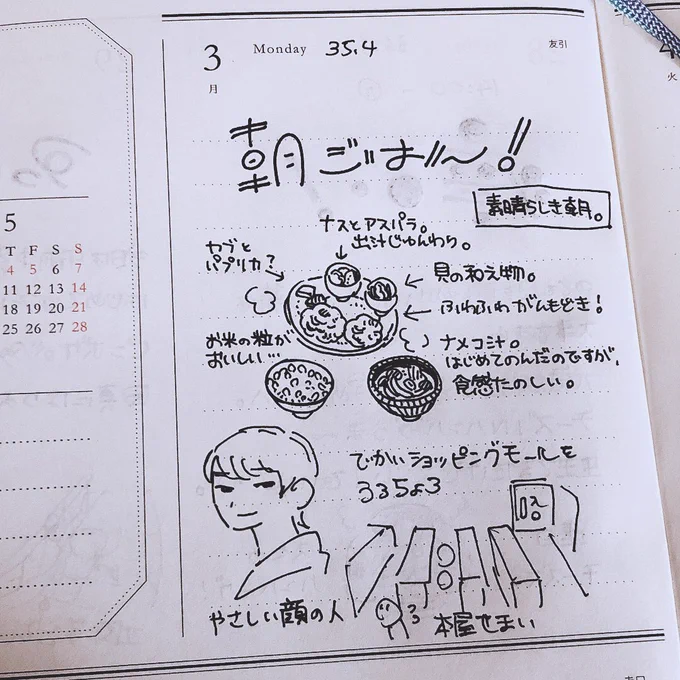 3
Monday 35.4
友引
月
朝ごはん〜!
素晴らしき朝。
ナスとアスパラ。
出汁じゅんわり。
カブと
パプリカ?
貝の和え物。
ふわふわがんもどき!
お米の粒が
おいしい…
ナメコ汁。
はじめてのんだのですが、
食感たのしい。
でかいショッピングモールを
うろちょろ
やさしい顔の人
本屋せまい
5
T F S S
4 5 6 7
11 12 13 14
18 19 20 21
25 26 27 28
火